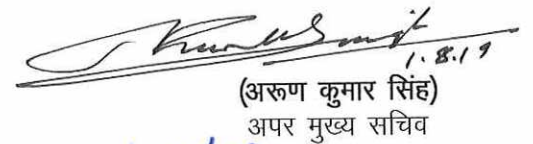 1.8.19
(अरूण कुमार सिंह)
अपर मुख्य सचिव